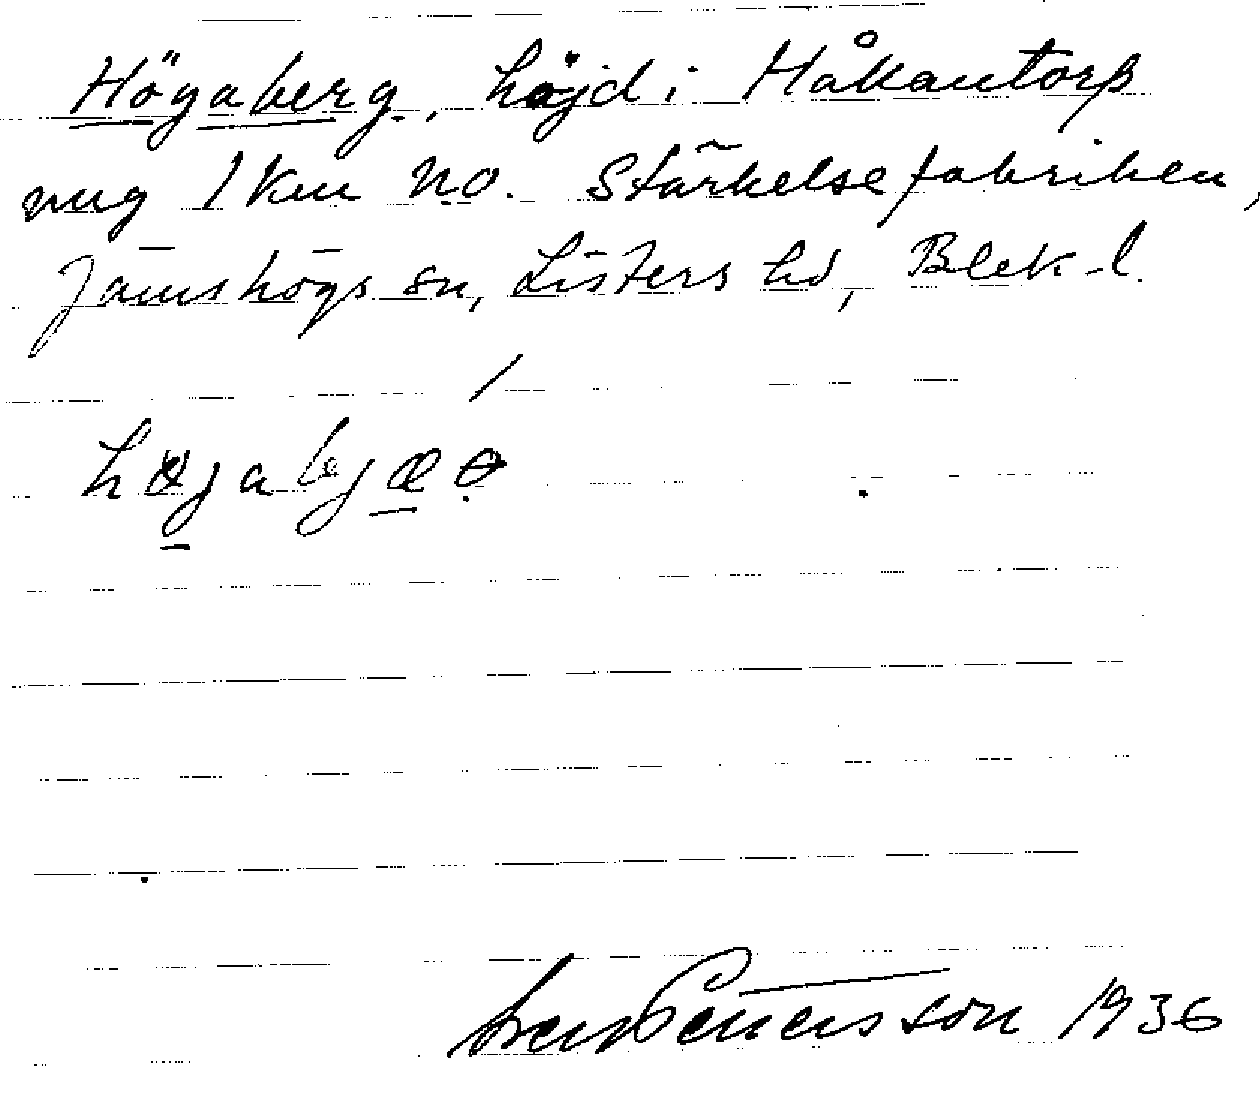 Högaberg, höjd i Håkantorp
nug 1 km NO. Stärkelsefabriken,
Jämshögs sn, Listers hd, Blek. l.
Sven Benson 1936